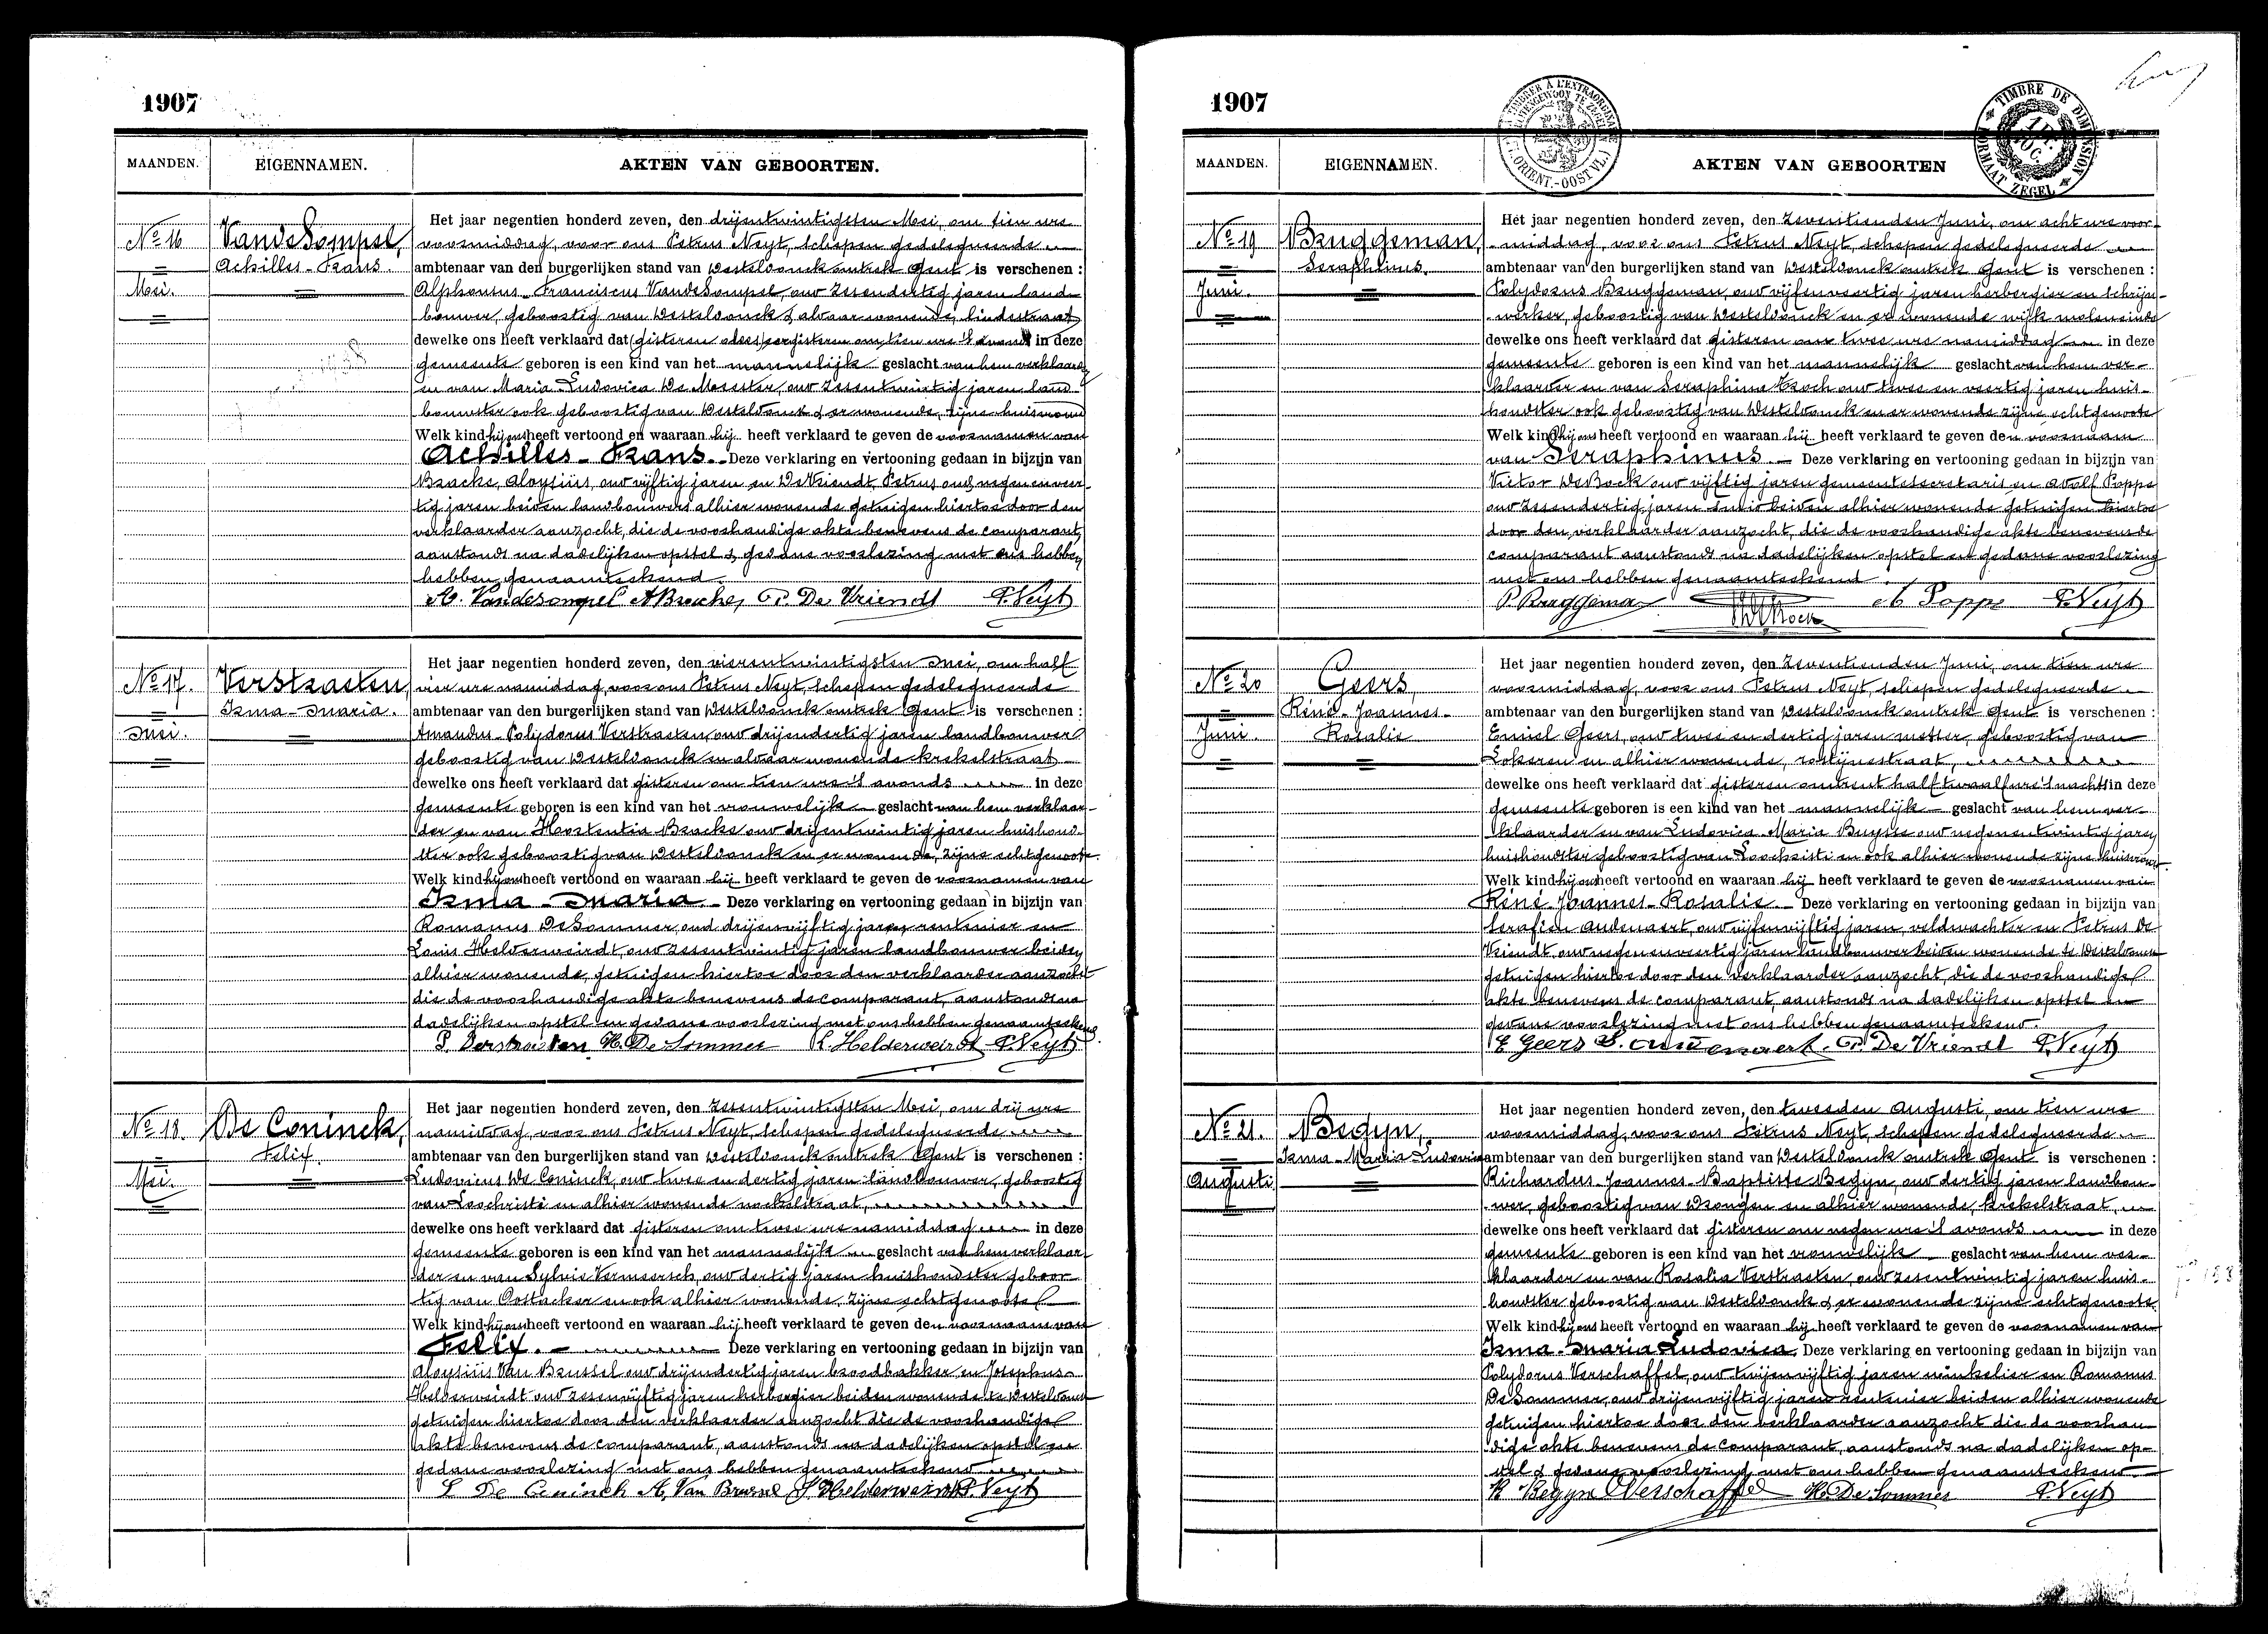 1907
MAANDEN. EIGENNAMEN. AKTEN VAN GEBOORTEN.
Nº 16
Mei.
VandeSompel,
Achilles-Frans.
Het jaar negentien honderd zeven, den drijentwintigsten Mei, om tien ure
voormiddag, voor ons Petrus Neyt, schepen gedelegueerde
ambtenaar van den burgerlijken stand van Westeldonck omtrek Gent is verschenen :
Alphonsus-Franciscus VandeSompel, oud zesendertig jaren land-
bouwer, geboortig van Westeldonck & aldaar wonende, lindestraat
dewelke ons heeft verklaard dat (gisteren ofeer) eergisteren om tien ure 's avonds in deze
gemeente geboren is een kind van het mannelijk geslacht van hem verklaarder
en van Maria Ludovica De Meester, oud zesentwintig jaren land-
bouwster ook geboortig van Westeldonck & er wonende, zijne huisvrouw
Welk kind hij ons heeft vertoond en waaraan hij heeft verklaard te geven de voornamen van
Achilles-Frans. Deze verklaring en vertooning gedaan in bijzijn van
Bracke, Aloysiüs, oud vijftig jaren en DeVriendt Petrus oud negenenveer-
tig jaren beiden landbouwers alhier wonende getuigen hiertoe door den
verklaarder aanzocht, die de voorhandige akte benevens de comparant,
aanstonds na dadelijken opstel & gedane voorlezing met ons hebben
hebben genaamteekend.
A. Vandesompel A Bracke, P. De Vriendt P. Neyt
Nº 17.
Mei.
Verstraeten,
Irma-Maria.
Het jaar negentien honderd zeven, den vierentwintigsten Mei, om half
vier ure namiddag, voor ons Petrus Neyt, schepen gedelegueerde
ambtenaar van den burgerlijken stand van Westeldonck omtrek Gent is verschenen :
Amandus-Polydorus Verstraeten, oud drijendertig jaren landbouwer
geboortig van Westeldonck en aldaar wonende krekelstraat
dewelke ons heeft verklaard dat gisteren om tien ure 's avonds in deze
gemeente geboren is een kind van het vrouwelijk geslacht van hem verklaar-
der en van Hortentia Bracke oud drijentwintig jaren huishoud-
ster ook geboortig van Westeldonck en er wonende, zijne echtgenoote.
Welk kind hij ons heeft vertoond en waaraan hij heeft verklaard te geven de voornamen van
Irma-Maria Deze verklaring en vertooning gedaan in bijzijn van
Romanus DeSommer oud drijenvijftig jaren rentenier en
Louis Helderweirdt, oud zesentwintig jaren landbouwer beiden
alhier wonende, getuigen hiertoe door den verklaarder aanzocht
die de voorhandige akte benevens de comparant, aanstonds na
dadelijken opstel en gedane voorlezing met ons hebben genaamteekend.
P. Verstraeten R. De Sommer L. Helderweirdt P. Neyt
Nº 18.
Mei.
De Coninck,
Felix.
Het jaar negentien honderd zeven, den zesentwintigsten Mei, om drij ure
namiddag, voor ons Petrus Neyt, schepen gedelegueerde
ambtenaar van den burgerlijken stand van Westeldonck omtrek Gent is verschenen :
Ludovicus De Coninck, oud twee en dertig jaren landbouwer, geboortig
van Loochristi en alhier wonende
dewelke ons heeft verklaard dat gisteren om twee ure namiddag in deze
gemeente geboren is een kind van het mannelijk geslacht van hem verklaar-
der en van Sylvie Vermeersch, oud dertig jaren huishoudster geboor-
tig van Oostacker en ook alhier wonende, zijne echtgenoote
Welk kind hij ons heeft vertoond en waaraan hij heeft verklaard te geven den voornaam van
Felix. Deze verklaring en vertooning gedaan in bijzijn van
Aloysiüs Van Brussel oud drijendertig jaren broodbakker en Josephus
Helderweirdt oud zesenvijftig jaren herbergier beiden wonende te Westeldonck
getuigen hiertoe door den verklaarder aanzocht die de voorhandige
akte benevens de comparant, aanstonds na dadelijken opstel en
gedane voorlezing met ons hebben genaamteekend
L De Coninck A, Van Brussel J Helderweirdt P. Neyt
1907
TIMBRE DE DIMENSION
FORMAAT ZEGEL
MAANDEN. EIGENNAMEN. AKTEN VAN GEBOORTEN
Nº 19
Juni.
Bruggeman,
Seraphinus.
Het jaar negentien honderd zeven, den zeventienden Juni, om acht ure voor-
middag, voor ons Petrus Neyt, schepen gedelegueerde
ambtenaar van den burgerlijken stand van Westeldonck omtrek Gent is verschenen :
Polydorus Bruggeman, oud vijfenveertig jaren herbergier en schrijn-
werker, geboortig van Westeldonck en er wonende wijk moleneinde
dewelke ons heeft verklaard dat gisteren om twee ure namiddag in deze
gemeente geboren is een kind van het mannelijk geslacht van hem ver-
klaarder en van Seraphina oud twee en veertig jaren huis-
houdster ook geboortig van Westeldonck en er wonende zijne echtgenoote
Welk kind hij ons heeft vertoond en waaraan hij heeft verklaard te geven den voornaam
van Seraphinus. Deze verklaring en vertooning gedaan in bijzijn van
Victor DeBock oud vijftig jaren gemeentesecretaris en Adolf Poppe
oud zesendertig jaren beiden alhier wonende getuigen hiertoe
door den verklaarder aanzocht, die de voorhandige akte benevens de
comparant aanstonds na dadelijken opstel en gedane voorlezing
met ons hebben genaamteekend
P. Bruggeman A Poppe P. Neyt
Nº 20
Juni.
Geers,
Réné-Joannes-
Rosalie
Het jaar negentien honderd zeven, den zeventienden Juni, om tien ure
voormiddag, voor ons Petrus Neyt, schepen gedelegueerde
ambtenaar van den burgerlijken stand van Westeldonck omtrek Gent is verschenen :
Emiel Geers, oud twee en dertig jaren metser, geboortig van
Lokeren en alhier wonende,
dewelke ons heeft verklaard dat gisteren omtrent half twaalf ure 's nachts in deze
gemeente geboren is een kind van het mannelijk geslacht van hem ver-
klaarder en van Ludovica Maria Buysse oud negenentwintig jaren
huishoudster geboortig van Loochristi en ook alhier wonende zijne huisvrouw.
Welk kind hij ons heeft vertoond en waaraan hij heeft verklaard te geven de voornamen van
Réné Joannes-Rosalie Deze verklaring en vertooning gedaan in bijzijn van
Serafien Audenaert, oud vijfenvijftig jaren, veldwachter en Petrus De
Vriendt, oud negenenveertig jaren landbouwer beiden wonende te Westeldonck
getuigen hiertoe door den verklaarder aanzocht, die de voorhandige
akte benevens de comparant, aanstonds na dadelijken opstel en
gedane voorlezing met ons hebben genaamteekend.
E Geers S. Audenaert. P. De Vriendt P. Neyt
Nº 21.
Augusti
Begyn,
Irma-Maria-Ludovica
Het jaar negentien honderd zeven, den tweeden Augusti, om tien ure
voormiddag, voor ons Petrus Neyt, schepen gedelegueerde
ambtenaar van den burgerlijken stand van Westeldonck omtrek Gent is verschenen :
Richardus-Joannes-Baptiste Begyn, oud dertig jaren landbou-
wer, geboortig van Drongen en alhier wonende, krekelstraat,
dewelke ons heeft verklaard dat gisteren om negen ure 's avonds in deze
gemeente geboren is een kind van het vrouwelijk geslacht van hem ver-
klaarder en van Rosalia Verstraeten, oud zesentwintig jaren huis-
houdster geboortig van Westeldonck & er wonende zijne echtgenoote.
Welk kind hij ons heeft vertoond en waaraan hij heeft verklaard te geven de voornamen van
Irma-Maria Ludovica Deze verklaring en vertooning gedaan in bijzijn van
Polydorus Verschaffel, oud tweeenvijftig jaren winkelier en Romanus
DeSommer, oud drijenvijftig jaren rentenier beiden alhier wonende
getuigen hiertoe door den verklaarder aanzocht die de voorhan-
dige akte benevens de comparant, aanstonds na dadelijken op-
stel & gedane voorlezing met ons hebben genaamteekend.
R Begyn Verschaffel R. De Sommer P. Neyt